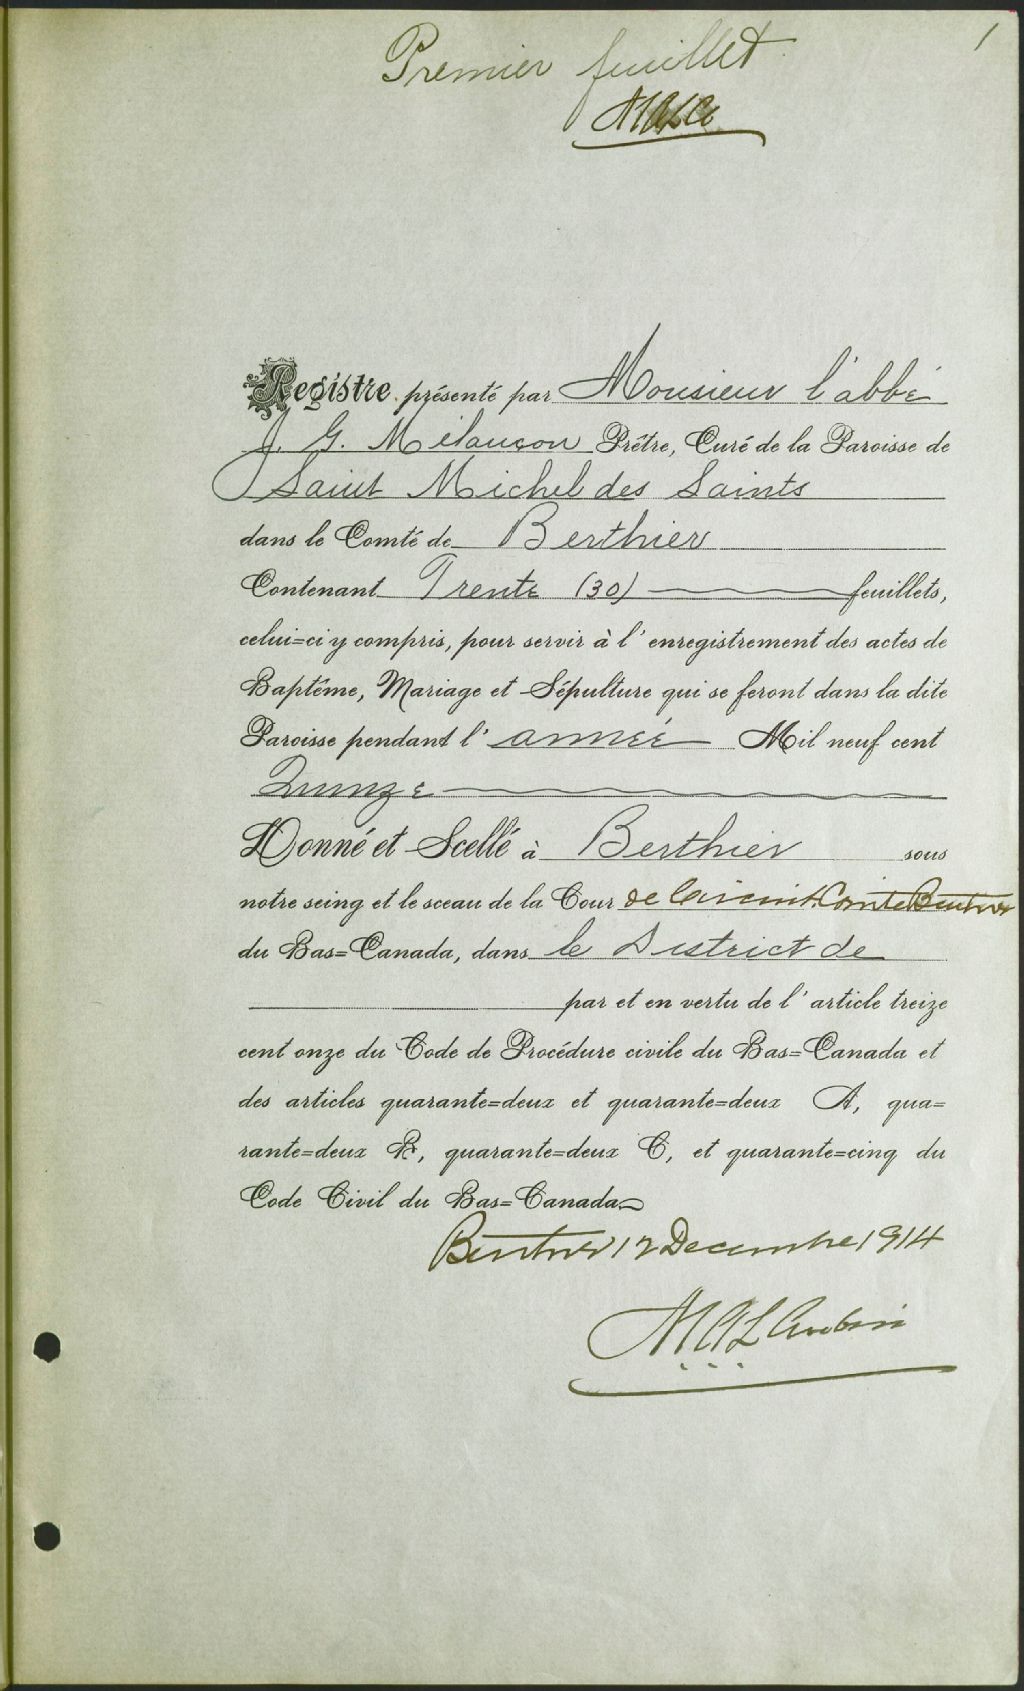 1
Premier feuillet
MALA
Registre présenté par Monsieur l'abbé
J. G. Mélançon Prêtre, Curé de la Paroisse de
Saint Michel des Saints
dans le Comté de Berthier
Contenant Trente (30) feuillets,
celui=ci y compris, pour servir à l'enregistrement des actes de
Baptême, Mariage et Sépulture qui se feront dans la dite
Paroisse pendant l'année Mil neuf cent
Quinze
Donné et Scellé à Berthier sous
notre seing et le sceau de la Cour de Circuit Comté Berthier
du Bas=Canada, dans le District de
par et en vertu de l'article treize
cent onze du Code de Procédure civile du Bas=Canada et
des articles quarante=deux et quarante=deux A, qua=
rante=deux B, quarante=deux C, et quarante=cinq du
Code Civil du Bas=Canada
Berthier 12 Decembre 1914
MAL Aubin